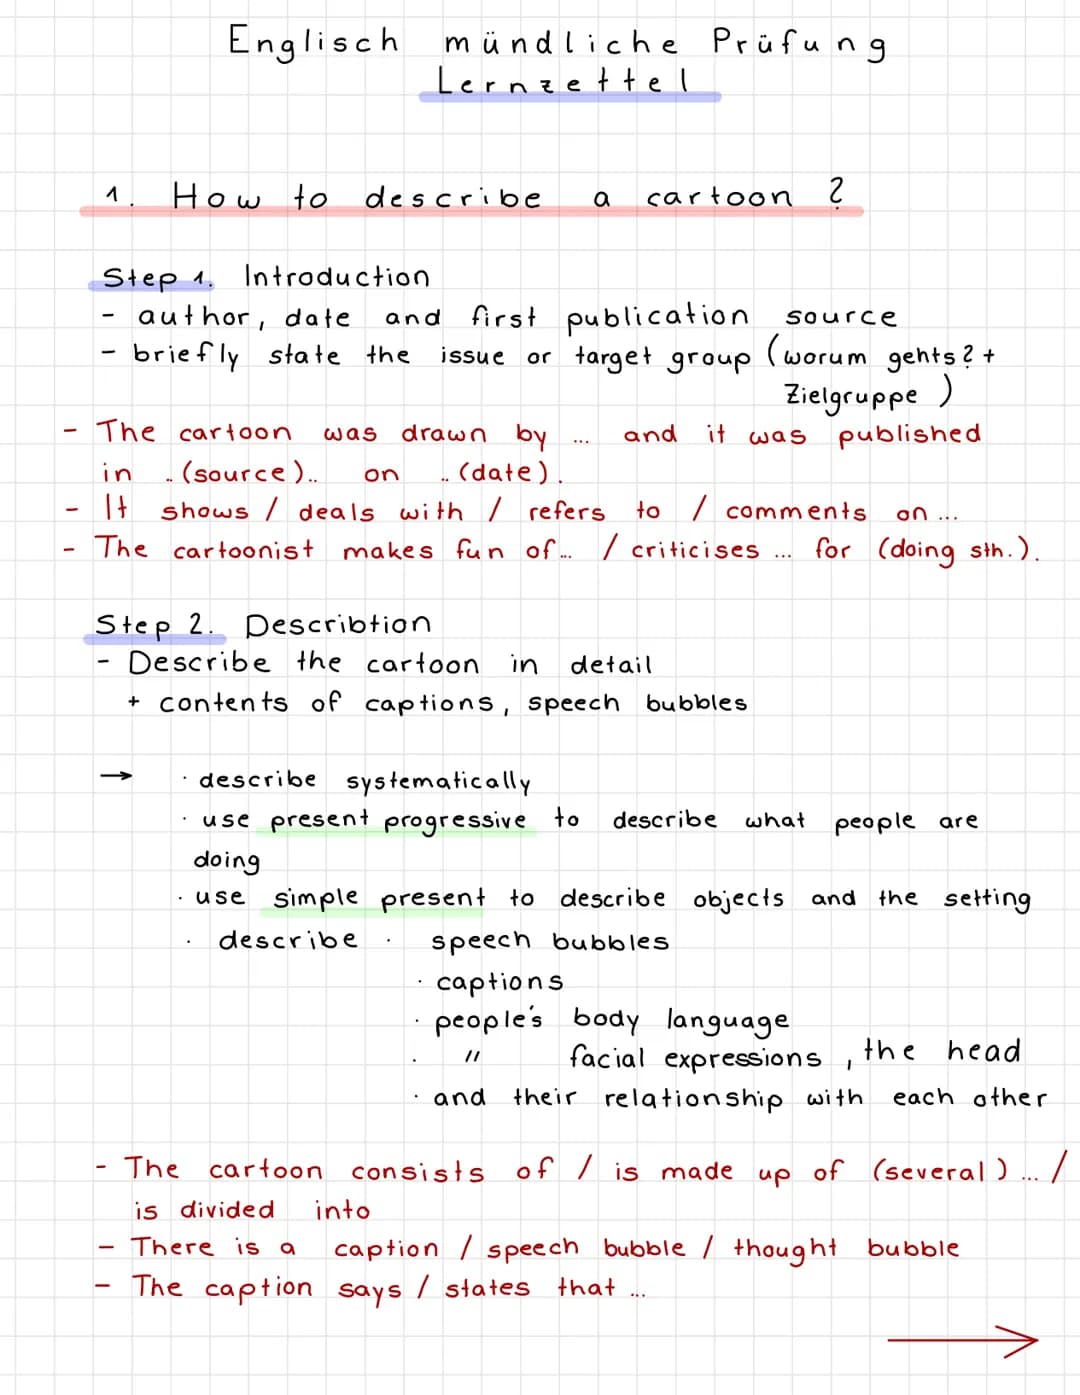 Englisch mündliche Prüfung
Lernzettel
1. How to describe a cartoon ?
Step 1. Introduction
- author, date and first publication source
- briefly state the issue or target group (worum gehts? +
Zielgruppe )
- The cartoon was drawn by ... and it was published
in ..(source).. on ..(date).
- It shows / deals with / refers to / comments on ...
- The cartoonist makes fun of... / criticises ... for (doing sth.).
Step 2. Describtion
- Describe the cartoon in detail
+ contents of captions, speech bubbles
→ · describe systematically
· use present progressive to describe what people are
doing
· use simple present to describe objects and the setting
· describe · speech bubbles
· captions
· people's body language
· " facial expressions, the head
· and their relationship with each other
- The cartoon consists of / is made up of (several) ... /
is divided into
- There is a caption / speech bubble / thought bubble
- The caption says / states that ...